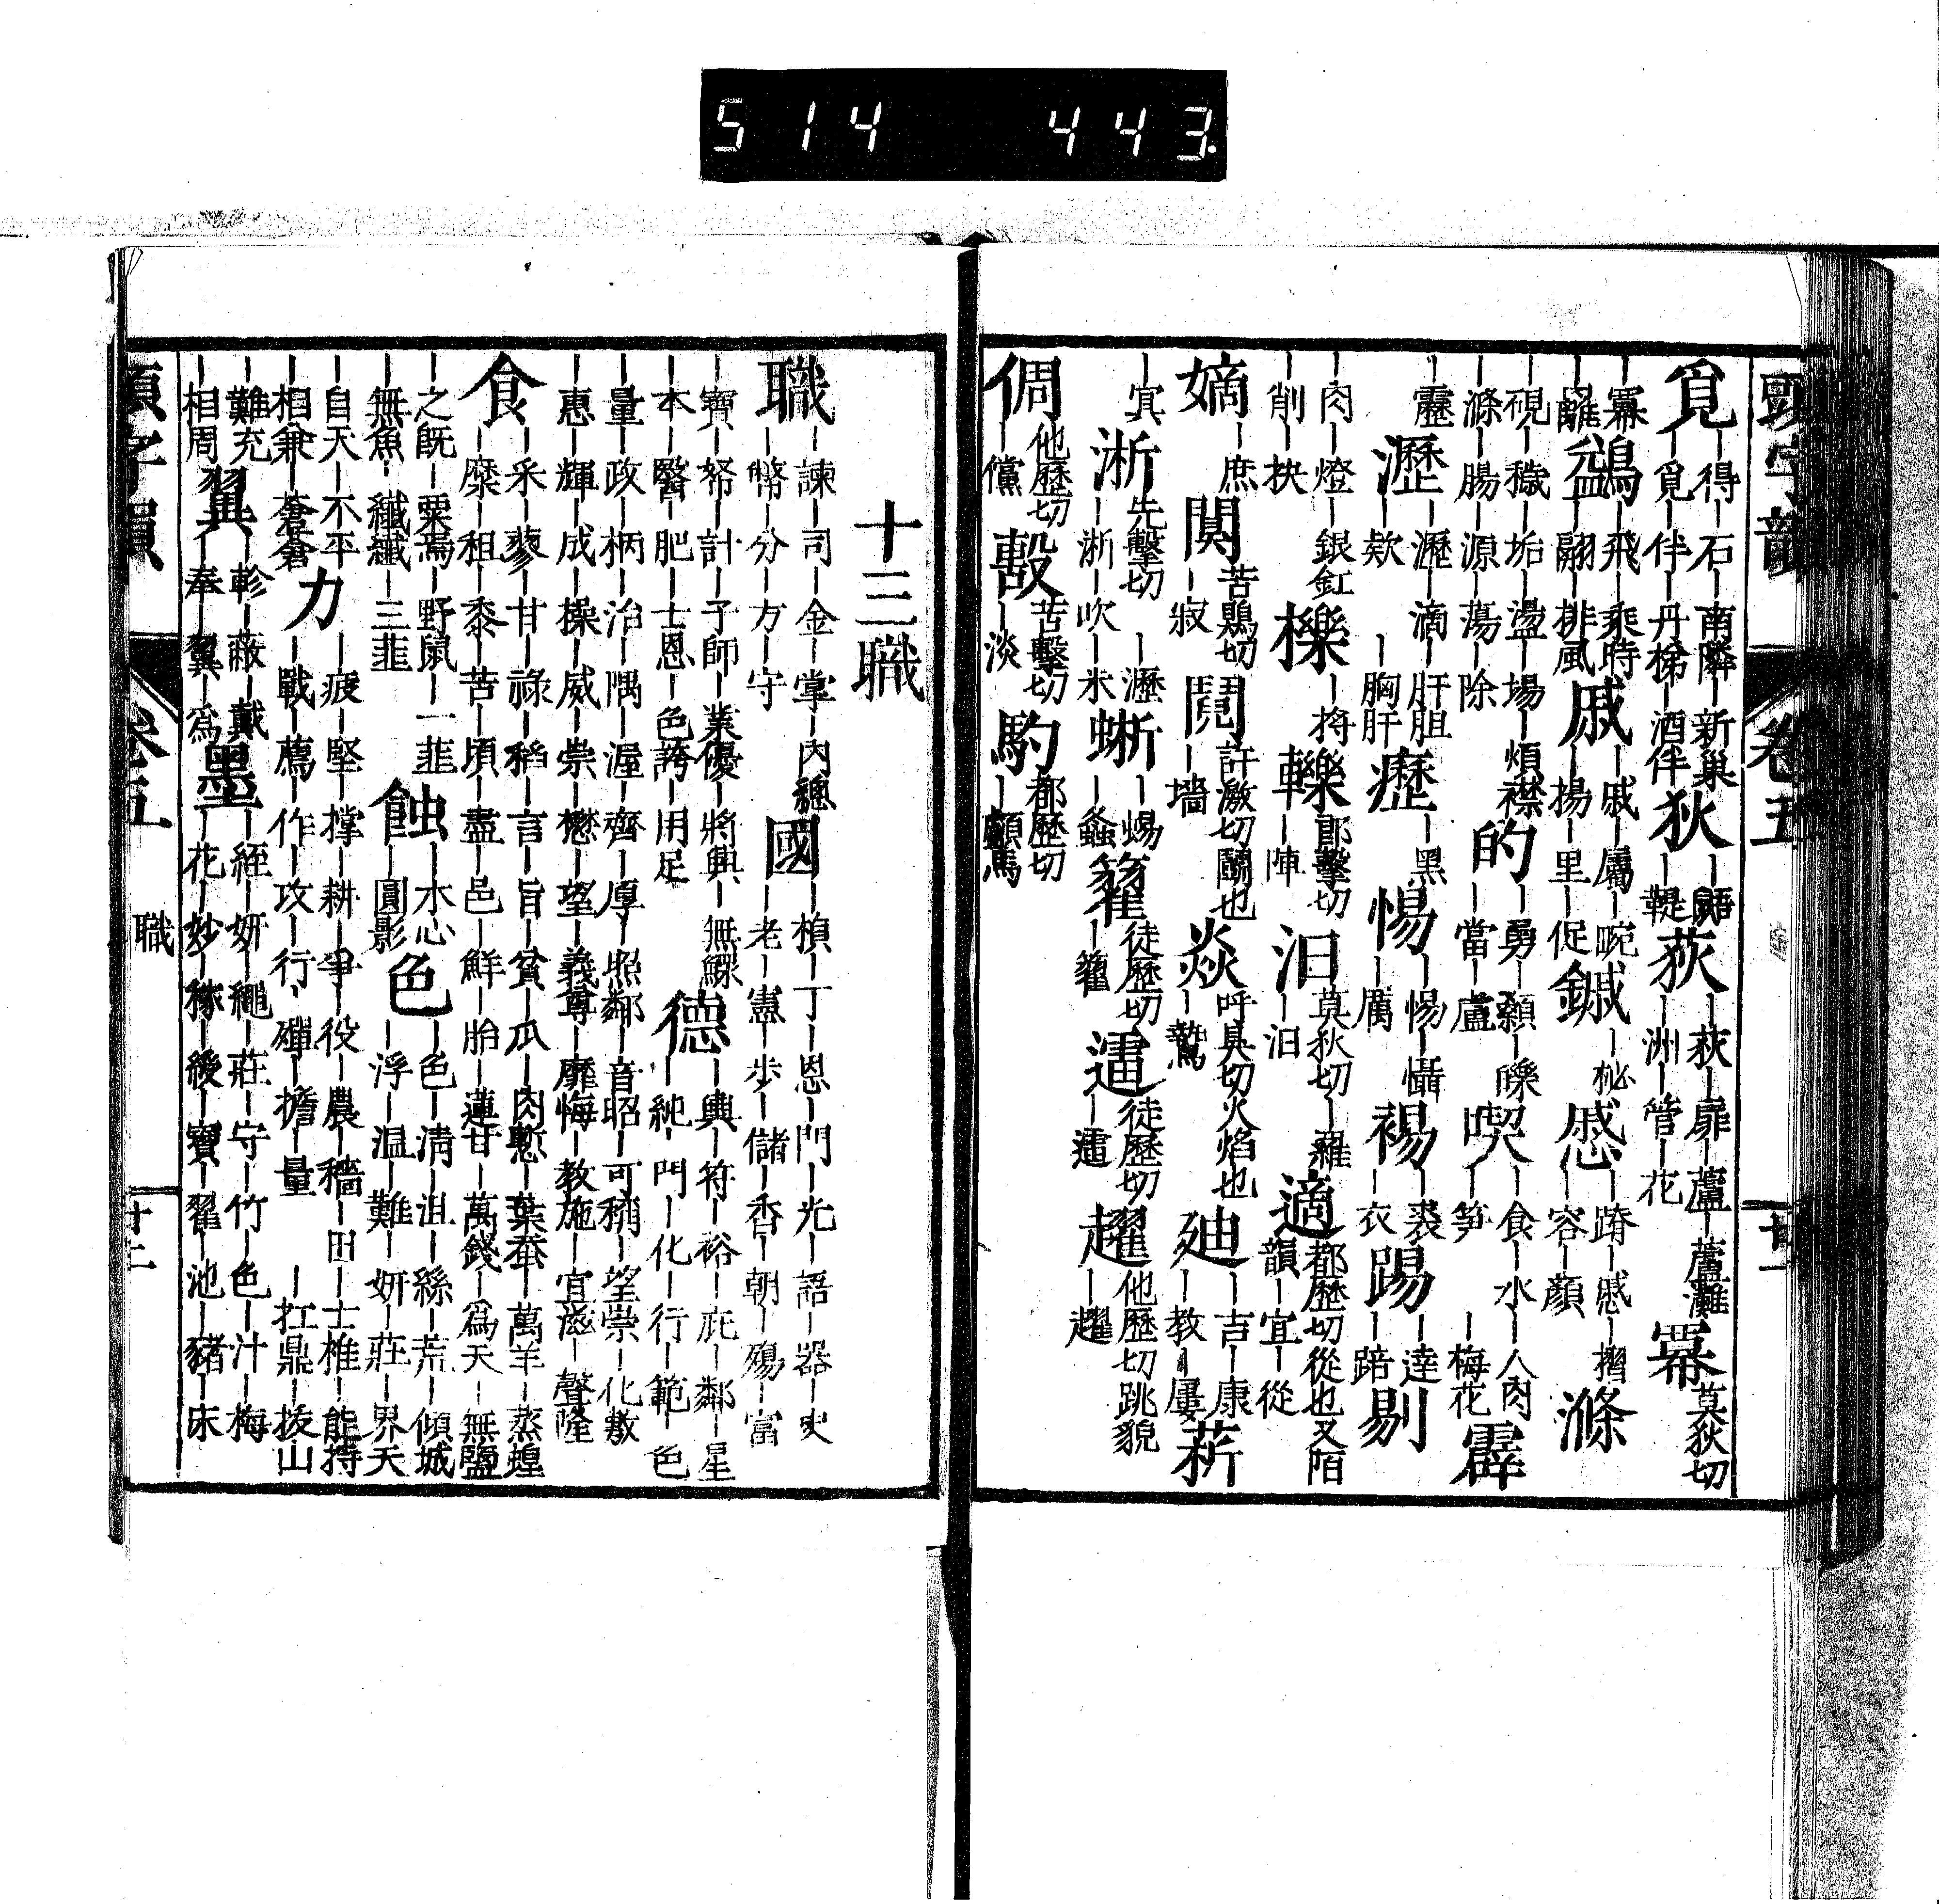 514 443.
頭字韻 卷五 廿一
覓｜得｜石｜南隣｜新巢｜覓｜伴｜丹梯｜酒伴狄｜鞮荻｜荻｜扉｜蘆｜蘆灘｜洲｜管｜花冪莫狄切
｜冪｜離鷁｜飛｜乘時｜翩｜排風戚｜戚｜屬｜畹｜揚｜里｜促鏚｜柲慼｜蹐｜慼｜摺｜容｜顏滌
｜硯｜穢｜垢｜盪場｜煩襟｜滌｜腸｜源｜蕩｜除的｜勇｜顙｜皪｜當｜盧喫｜食｜水｜人肉｜笋｜梅花霹
｜靂瀝｜瀝｜滴｜肝胆｜欵｜胸肝癧｜黑惕｜惕｜懾｜厲裼｜裘｜衣踢｜達｜踣剔
｜肉｜燈｜銀釭｜削｜抉櫟｜捋轢郎擊切｜陣汨莫狄切｜羅｜汨適都歷切從也又陌韻｜宜｜從
嫡｜庶闃苦鶪切｜寂鬩許激切鬭也｜墻焱呼具切火焰也｜驚迪｜吉｜康｜教｜屢菥
｜蓂淅先擊切｜瀝｜淅｜吹｜米蜥｜蜴｜螽籊徒歷切｜籊逎徒歷切｜逎趯他歷切跳貌｜趯
倜他歷切｜儻毄苦擊切｜淡馰都歷切｜顱馬
十三職
職｜諫｜司｜金｜掌｜內魏｜幣｜分｜方｜守國｜楨｜丁｜恩｜門｜光｜語｜器｜史｜老｜憲｜步｜儲｜香｜朝｜殤｜富
｜寶｜帑｜計｜子師｜業優｜將興｜無鰥｜本｜醫｜肥｜士恩｜色誇｜用足德｜興｜符｜裕｜庇｜鄰｜星｜純｜門｜化｜行｜範｜色
｜量｜政｜柄｜治｜隅｜渥｜齊｜厚｜照鄰｜音昭｜可稱｜望崇｜化敷｜惠｜輝｜成｜操｜威｜崇｜懋｜望｜義尊｜靡悔｜教施｜宜滋｜聲隆
食｜采｜蓼｜甘｜祿｜稻｜言｜旨｜貧｜瓜｜肉慙｜葉蚕｜萬羊｜蒸蝗｜糜｜租｜黍｜苦｜頃｜盡｜邑｜鮮｜胎｜蓮甘｜萬錢｜為天｜無鹽
｜之既｜粟焉｜野鼠｜一韮｜無魚｜孅孅｜三韮蝕｜水心｜圓影色｜色｜淸｜沮｜絲｜荒｜傾城｜浮｜温｜難｜妍｜莊｜界天
｜自天｜不平｜相兼｜蒼蒼力｜疲｜堅｜撑｜耕｜爭｜役｜農｜穡｜田｜士椎｜能持｜戰｜薦｜作｜攻｜行｜殫｜擔｜量｜扛鼎｜拔山
｜難充｜相周翼｜軫｜蔽｜戴｜奉｜翼｜為墨｜絰｜妍｜繩｜莊｜守｜竹｜色｜汁｜梅｜花｜妙｜稼｜綬｜寶｜翟｜池｜豬｜床
頭字韻 卷五 職 廿二